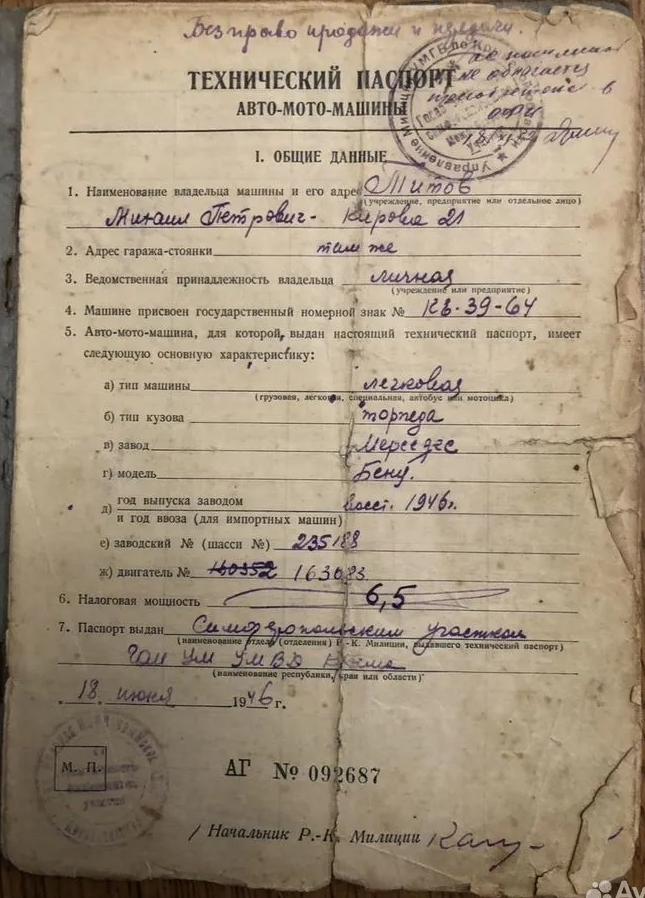 Без право продажи и передачи.
ТЕХНИЧЕСКИЙ ПАСПОРТ
АВТО-МОТО-МАШИНЫ
I. ОБЩИЕ ДАННЫЕ
1. Наименование владельца машины и его адрес Титов
(учреждение, предприятие или отдельное лицо)
Михаил Петрович - Кирова 21
2. Адрес гаража-стоянки там же
3. Ведомственная принадлежность владельца личная
(учреждение или предприятие)
4. Машине присвоен государственный номерной знак № КЪ-39-64
5. Авто-мото-машина, для которой, выдан настоящий технический паспорт, имеет
следующую основную характеристику:
а) тип машины легковая
(грузовая, легковая, специальная, автобус или мотоцикл)
б) тип кузова торпеда
в) завод Мерседес
г) модель Бенц.
д) год выпуска заводом восст. 1946г.
и год ввоза (для импортных машин)
е) заводский № (шасси №) 235188
ж) двигатель № 160352 163083
6. Налоговая мощность 6,5
7. Паспорт выдан Симферопольским участком
(наименование отдела (отделения) Р.-К. Милиции, выдавшего технический паспорт)
ГАИ УМ УМВД Крыма
(наименование республики, края или области)
18 июня 1946 г.
М. П.
АГ № 092687
Начальник Р.-К. Милиции